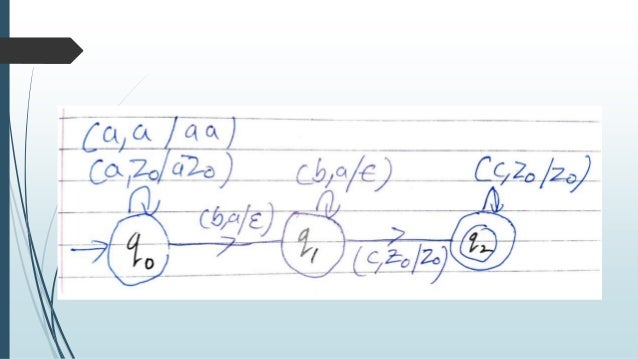 (a,a/aa)
(a,z₀/az₀) (b,a/ε) (c,z₀/z₀)
(b,a/ε)
q₀ q₁ q₂
(c,z₀/z₀)